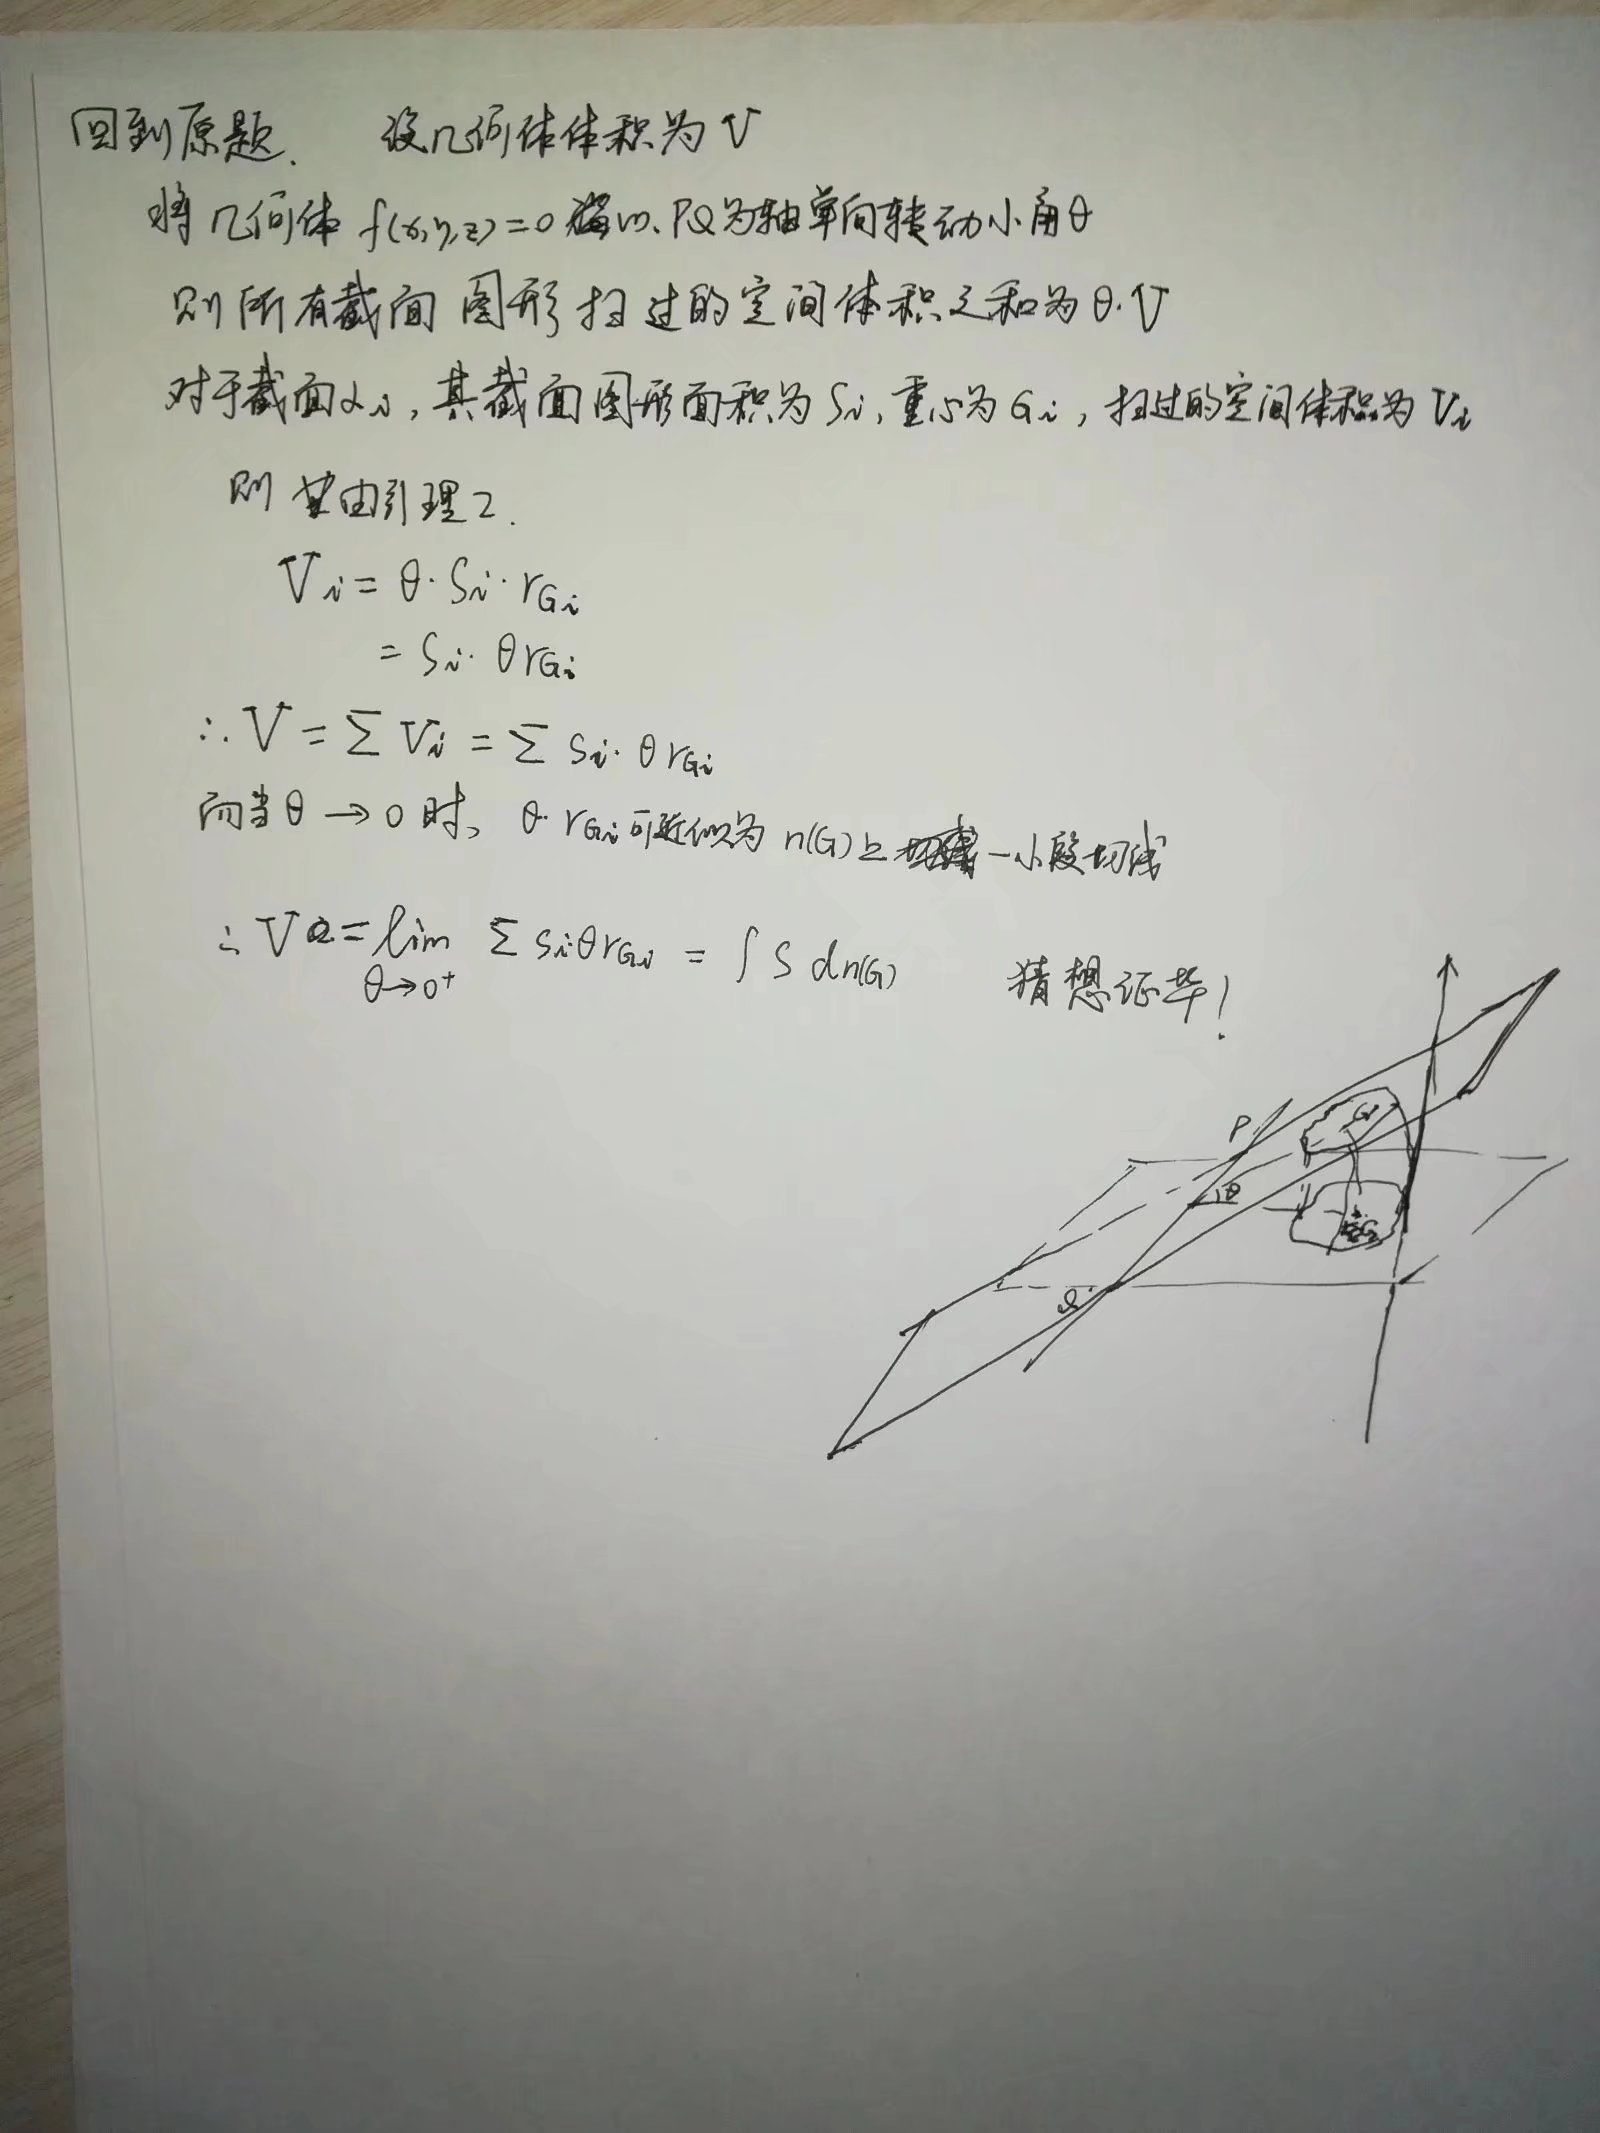 回到原题. 设几何体体积为V
将几何体 f(x,y,z)=0 以 PQ为轴单向转动小角θ
则所有截面图形扫过的空间体积之和为θ·V
对于截面αi, 其截面图形面积为Si, 重心为Gi, 扫过的空间体积为Vi
则 由引理2.
Vi = θ·Si·rGi
= Si·θrGi
∴V = Σ Vi = Σ Si·θrGi
而当θ→0时, θ·rGi可近似为 n(G)上 一小段切线
∴V = lim Σ SiθrGi = ∫ S dn(G) 猜想证毕!
θ→0⁺
P
G
θ
G
Q